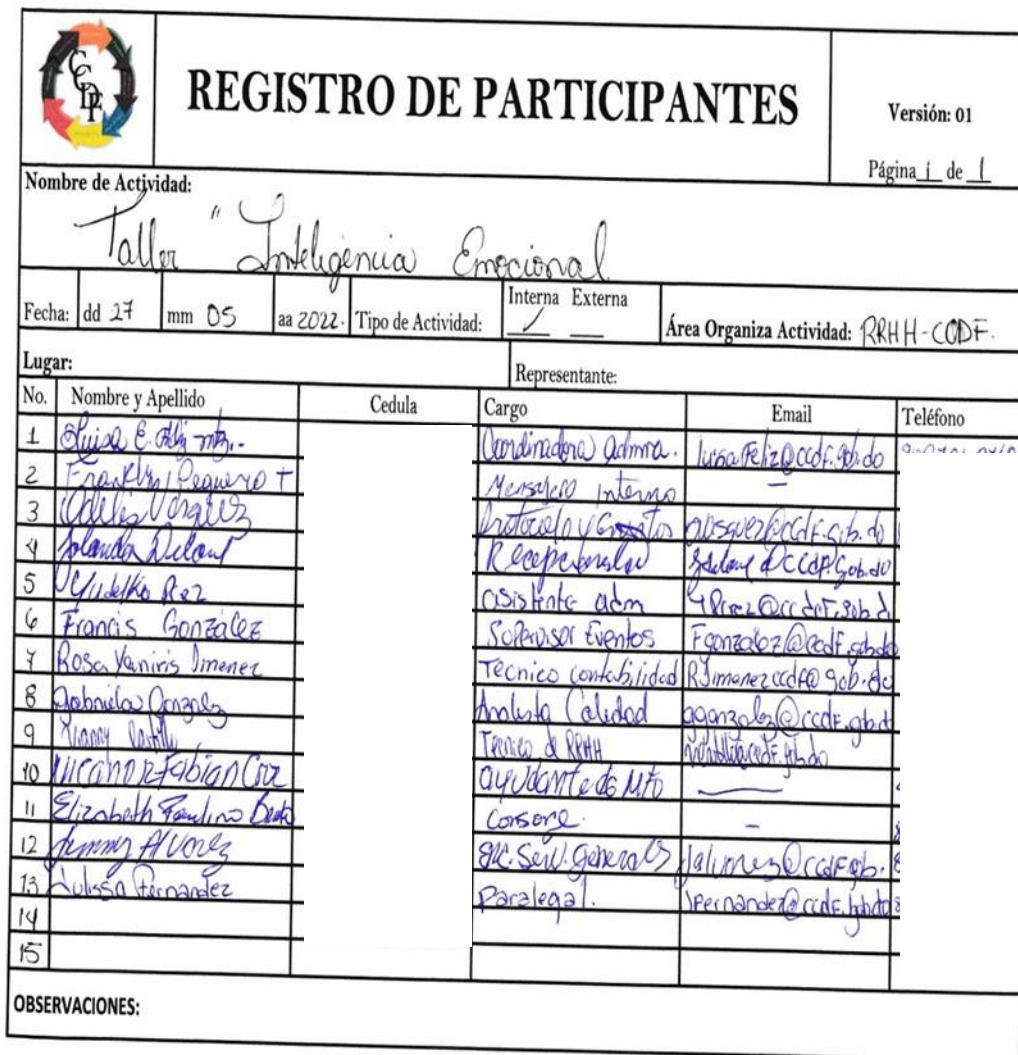 CCDF
REGISTRO DE PARTICIPANTES
Versión: 01
Página 1 de 1
Nombre de Actividad:
Taller " Inteligencia Emocional
Fecha: dd 27 mm 05 aa 2022. Tipo de Actividad: Interna Externa Área Organiza Actividad: RRHH-CCDF.
Lugar: Representante:
No. Nombre y Apellido Cedula Cargo Email Teléfono
1 Luisa E. Coordinadora admva. luisafeliz@ccdf.gob.do
2 Franklin Peguero T Mensajero interno —
3 Odelis Vasquez Protocolo y Eventos ovasquez@ccdf.gob.do
4 Yolanda Recepcionista @ccdf.gob.do
5 Yudelka asistente adm
6 Francis González Supervisor Eventos Fgonzalez@ccdf.gob.do
7 Rosa Yaniris Jimenez Tecnico contabilidad RJimenezccdf@gob.do
8 Gabriela Gonzalez Analista Calidad ggonzalez@ccdf.gob.do
9 Castillo Tecnico de RRHH
10 Nicanor Fabian Cruz ayudante de Mto —
11 Elizabeth Paulino Conserge. —
12 Jimmy Alvarez Serv. Generales @ccdf.gob.
13 Julissa Fernandez Paralegal. jfernandez@ccdf.gob.do
14
15
OBSERVACIONES: